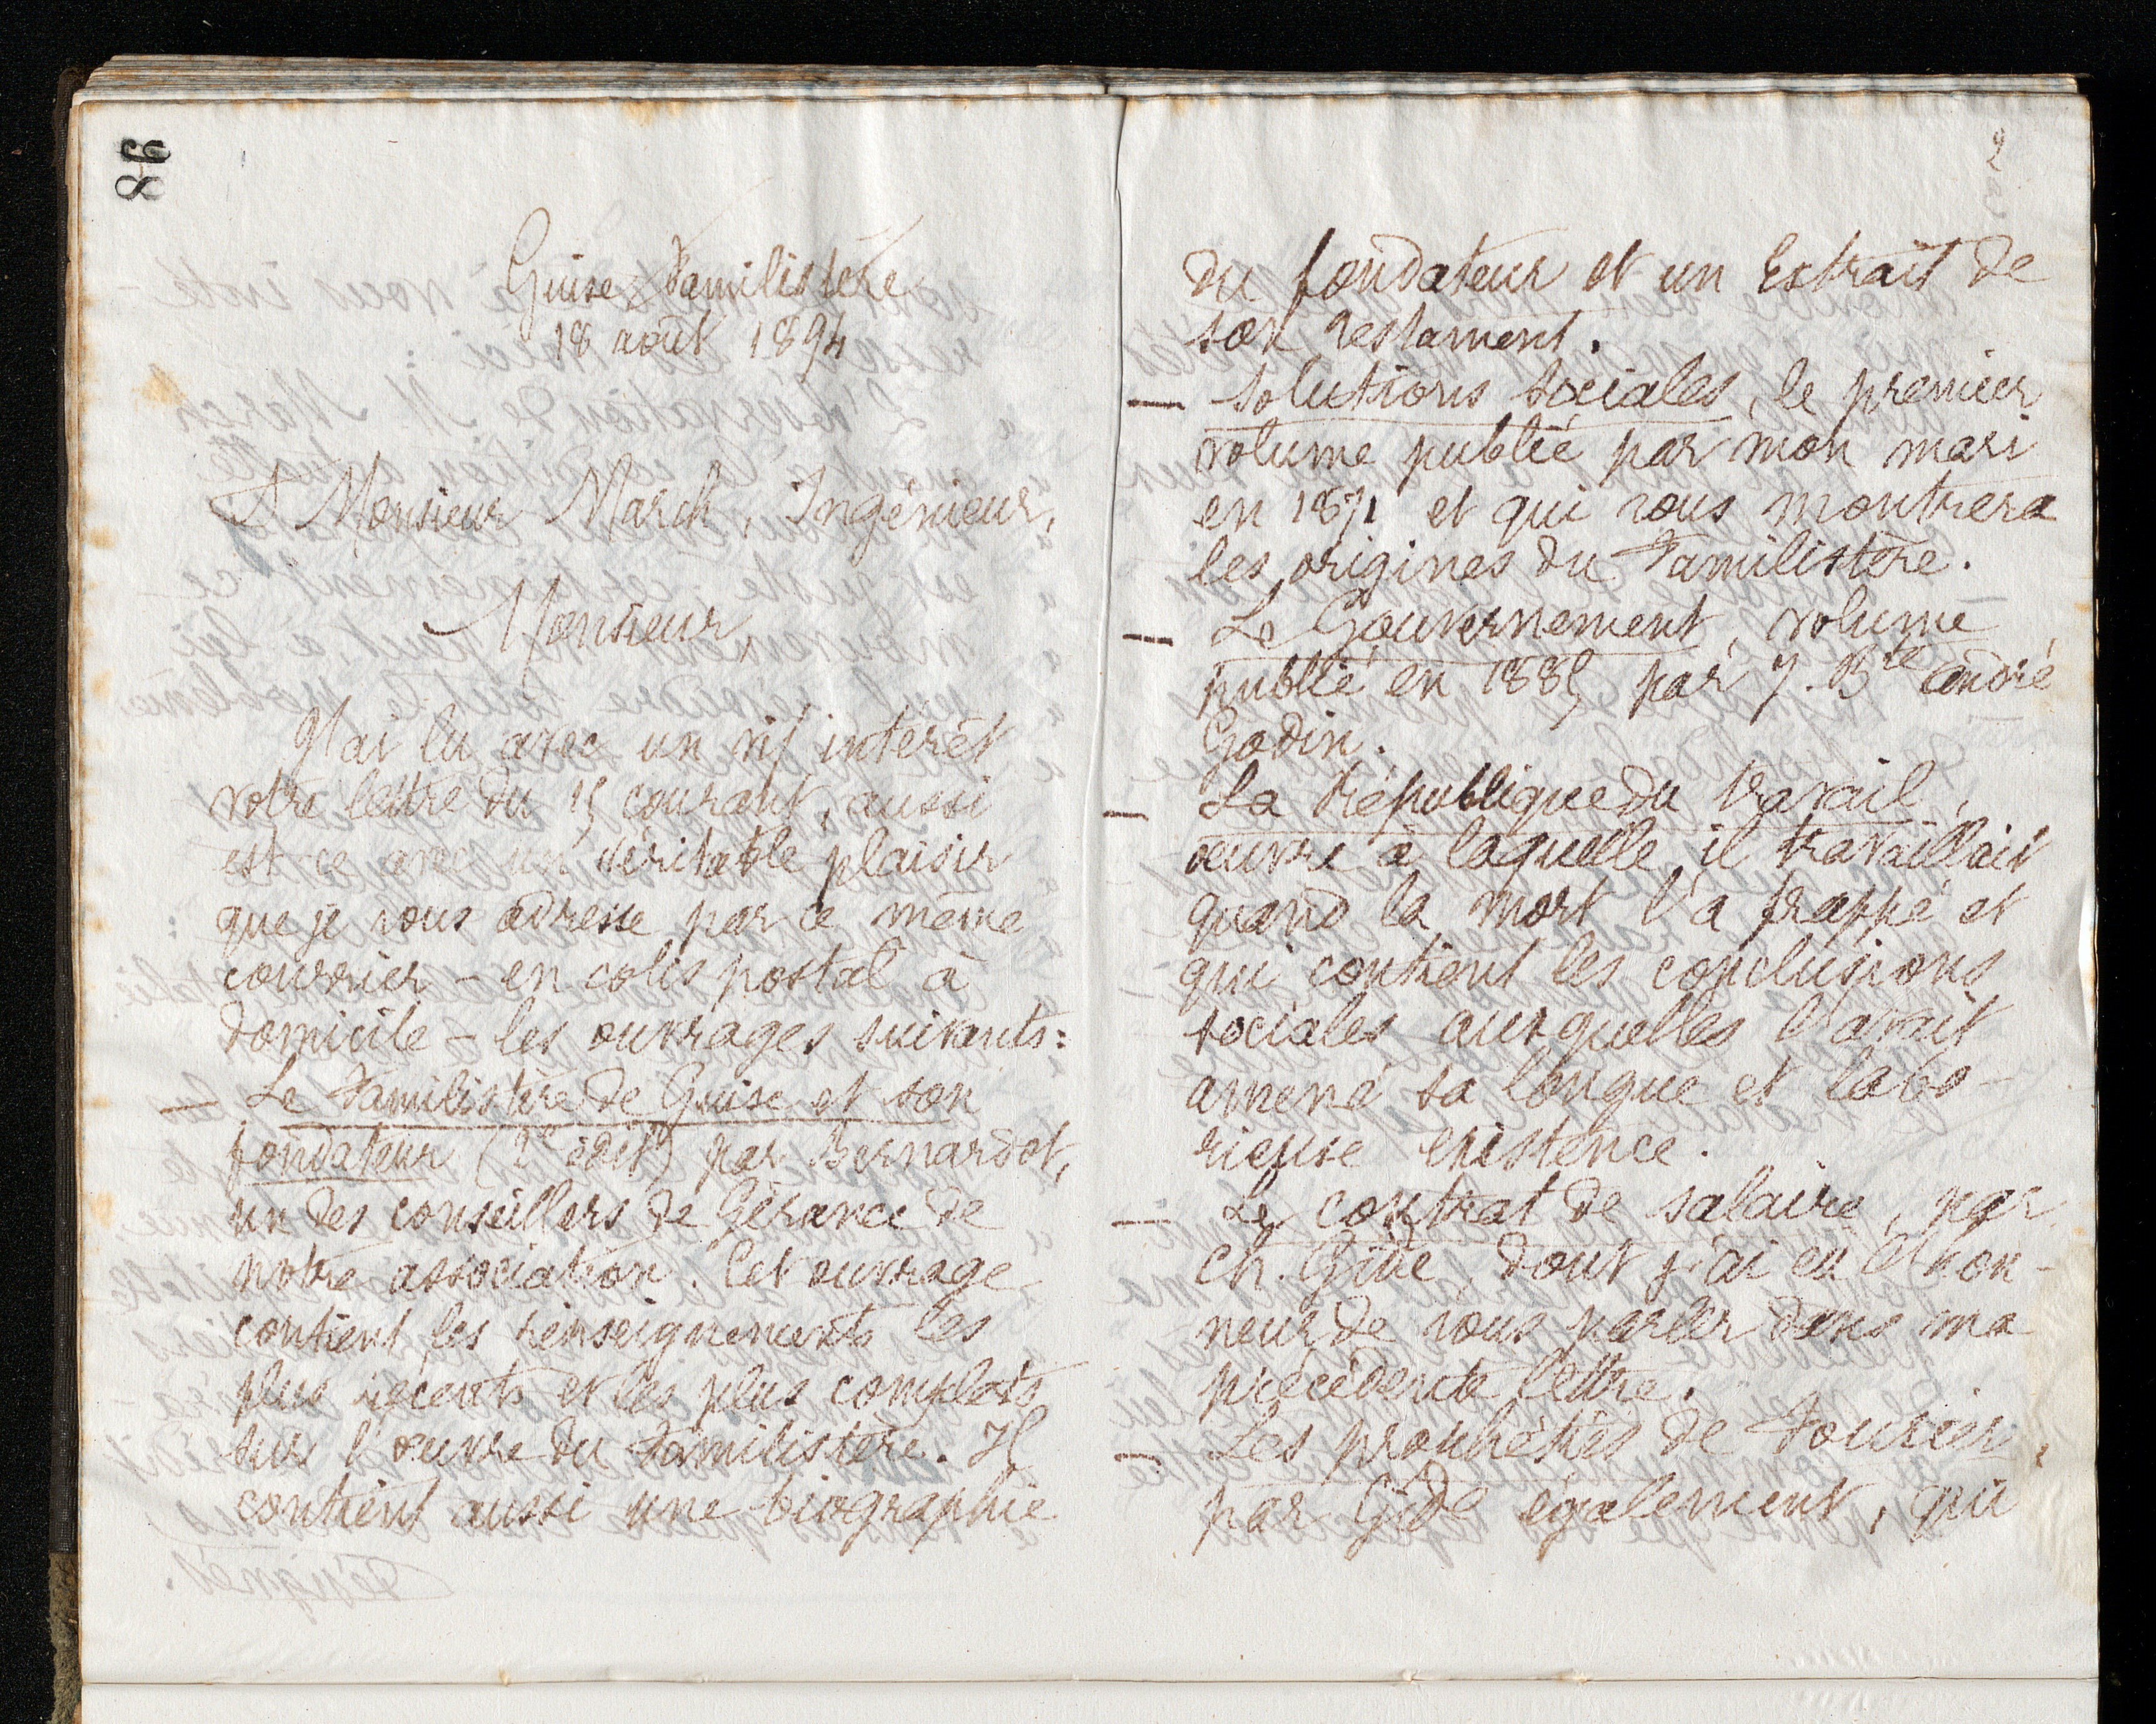 86
Guise Familistère
18 août 1894
A Monsieur March, Ingénieur,
Monsieur,
J'ai lu avec un vif intérêt
votre lettre du 15 courant, aussi
est-ce avec un véritable plaisir
que je vous adresse par ce même
courrier - en colis postal à
domicile - les ouvrages suivants:
— Le Familistère de Guise et son
fondateur (2e édit) par Bernardot,
un des conseillers de Gérance de
notre association. Cet ouvrage
contient les renseignements les
plus récents et les plus complets
sur l'œuvre du Familistère. Il
contient aussi une biographie
2
du fondateur et un Extrait de
son testament.
— Solutions sociales, le premier
volume publié par mon mari
en 1871 et qui vous montrera
les origines du Familistère.
— Le Gouvernement, volume
publié en 1885 par J. Bte André
Godin.
— La République du travail,
œuvre à laquelle il travaillait
quand la mort l'a frappé et
qui contient les conclusions
sociales auxquelles l'avait
amené sa longue et labo-
rieuse existence.
— Le contrat de salaire, par
Ch. Gide, dont j'ai eu l'hon-
neur de vous parler dans ma
précédente lettre.
— Les prophéties de Fourier,
par Gide également, qui